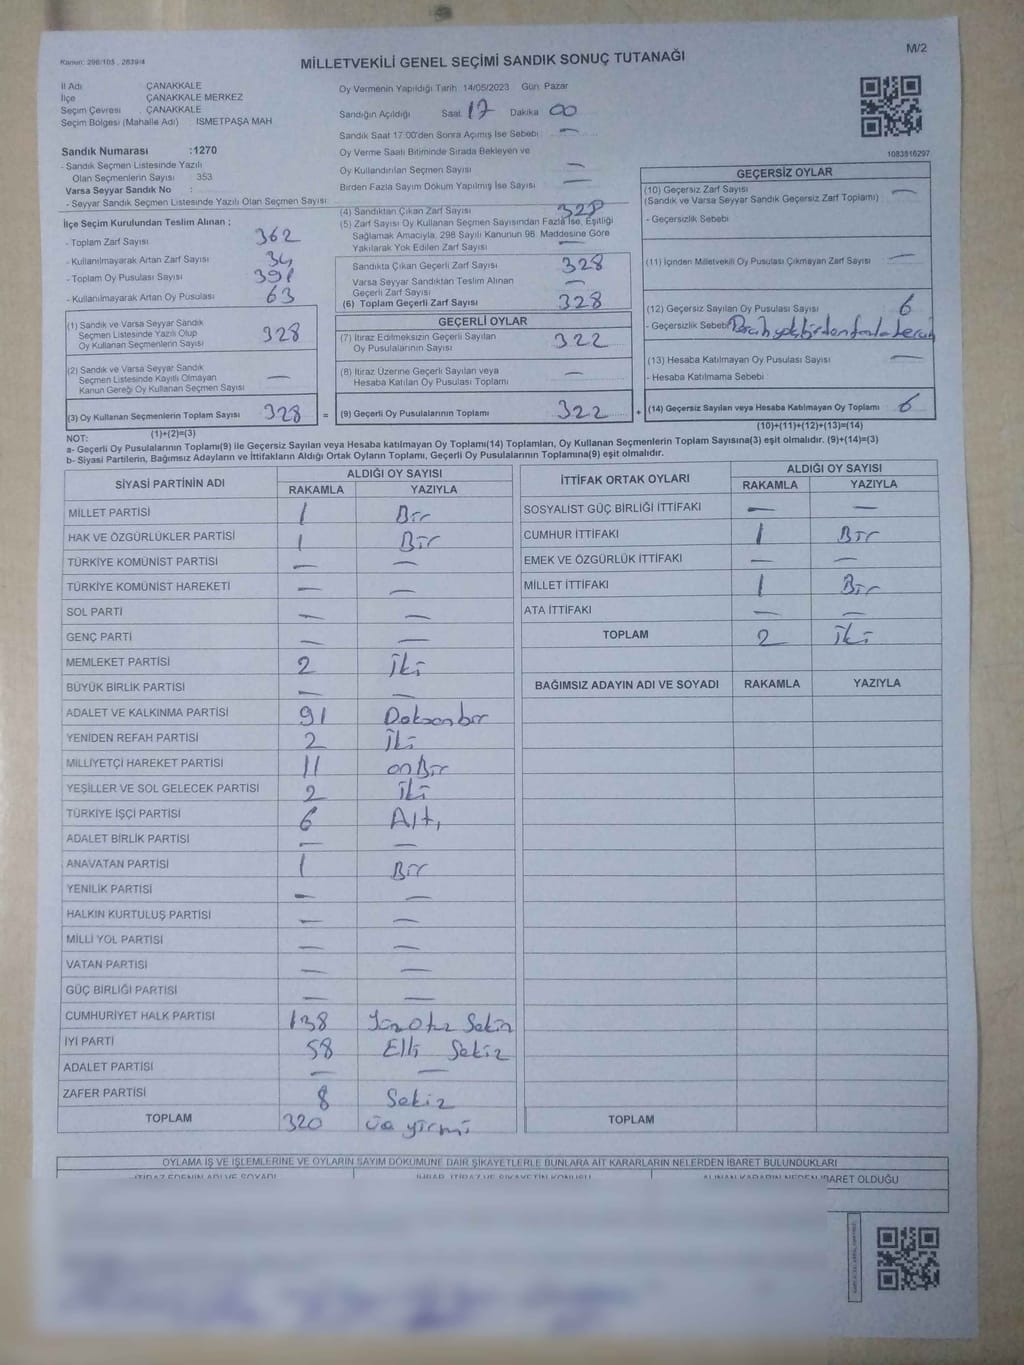 Kanun: 298/105 , 2839/4
MİLLETVEKİLİ GENEL SEÇİMİ SANDIK SONUÇ TUTANAĞI
M/2
İl Adı ÇANAKKALE
İlçe ÇANAKKALE MERKEZ
Seçim Çevresi ÇANAKKALE
Seçim Bölgesi (Mahalle Adı) İSMETPAŞA MAH
Sandık Numarası :1270
- Sandık Seçmen Listesinde Yazılı
Olan Seçmenlerin Sayısı 353
Varsa Seyyar Sandık No :
- Seyyar Sandık Seçmen Listesinde Yazılı Olan Seçmen Sayısı:
Oy Vermenin Yapıldığı Tarih 14/05/2023 Gün Pazar
Sandığın Açıldığı Saat 17 Dakika 00
Sandık Saat 17:00'den Sonra Açımış İse Sebebi —
Oy Verme Saati Bitiminde Sırada Bekleyen ve
Oy Kullandırılan Seçmen Sayısı —
Birden Fazla Sayım Döküm Yapılmış İse Sayısı —
1083516297
İlçe Seçim Kurulundan Teslim Alınan ;
- Toplam Zarf Sayısı 362
- Kullanılmayarak Artan Zarf Sayısı 34
- Toplam Oy Pusulası Sayısı 391
- Kullanılmayarak Artan Oy Pusulası 63
(1) Sandık ve Varsa Seyyar Sandık
Seçmen Listesinde Yazılı Olup
Oy Kullanan Seçmenlerin Sayısı 328
(2) Sandık ve Varsa Seyyar Sandık
Seçmen Listesinde Kayıtlı Olmayan
Kanun Gereği Oy Kullanan Seçmen Sayısı —
(3) Oy Kullanan Seçmenlerin Toplam Sayısı 328 =
(1)+(2)=(3)
(4) Sandıktan Çıkan Zarf Sayısı 328
(5) Zarf Sayısı Oy Kullanan Seçmen Sayısından Fazla İse, Eşitliği
Sağlamak Amacıyla, 298 Sayılı Kanunun 98. Maddesine Göre
Yakılarak Yok Edilen Zarf Sayısı —
Sandıkta Çıkan Geçerli Zarf Sayısı 328
Varsa Seyyar Sandıktan Teslim Alınan
Geçerli Zarf Sayısı —
(6) Toplam Geçerli Zarf Sayısı 328
GEÇERLİ OYLAR
(7) İtiraz Edilmeksizin Geçerli Sayılan
Oy Pusulalarının Sayısı 322
(8) İtiraz Üzerine Geçerli Sayılan veya
Hesaba Katılan Oy Pusulası Toplamı —
(9) Geçerli Oy Pusulalarının Toplamı 322 +
GEÇERSİZ OYLAR
(10) Geçersiz Zarf Sayısı —
(Sandık ve Varsa Seyyar Sandık Geçersiz Zarf Toplamı)
- Geçersizlik Sebebi
(11) İçinden Milletvekili Oy Pusulası Çıkmayan Zarf Sayısı —
(12) Geçersiz Sayılan Oy Pusulası Sayısı 6
- Geçersizlik Sebebi
(13) Hesaba Katılmayan Oy Pusulası Sayısı —
- Hesaba Katılmama Sebebi
(14) Geçersiz Sayılan veya Hesaba Katılmayan Oy Toplamı 6
(10)+(11)+(12)+(13)=(14)
NOT:
a- Geçerli Oy Pusulalarının Toplamı(9) ile Geçersiz Sayılan veya Hesaba katılmayan Oy Toplamı(14) Toplamları, Oy Kullanan Seçmenlerin Toplam Sayısına(3) eşit olmalıdır. (9)+(14)=(3)
b- Siyasi Partilerin, Bağımsız Adayların ve İttifakların Aldığı Ortak Oyların Toplamı, Geçerli Oy Pusulalarının Toplamına(9) eşit olmalıdır.
SİYASİ PARTİNİN ADI ALDIĞI OY SAYISI
RAKAMLA YAZIYLA
MİLLET PARTİSİ 1 Bir
HAK VE ÖZGÜRLÜKLER PARTİSİ 1 Bir
TÜRKİYE KOMÜNİST PARTİSİ — —
TÜRKİYE KOMÜNİST HAREKETİ — —
SOL PARTİ — —
GENÇ PARTİ — —
MEMLEKET PARTİSİ 2 İki
BÜYÜK BİRLİK PARTİSİ — —
ADALET VE KALKINMA PARTİSİ 91 Doksanbir
YENİDEN REFAH PARTİSİ 2 İki
MİLLİYETÇİ HAREKET PARTİSİ 11 onBir
YEŞİLLER VE SOL GELECEK PARTİSİ 2 İki
TÜRKİYE İŞÇİ PARTİSİ 6 Altı
ADALET BİRLİK PARTİSİ — —
ANAVATAN PARTİSİ 1 Bir
YENİLİK PARTİSİ — —
HALKIN KURTULUŞ PARTİSİ — —
MİLLİ YOL PARTİSİ — —
VATAN PARTİSİ — —
GÜÇ BİRLİĞİ PARTİSİ — —
CUMHURİYET HALK PARTİSİ 138 Yüz Otuz Sekiz
İYİ PARTİ 58 Elli Sekiz
ADALET PARTİSİ — —
ZAFER PARTİSİ 8 Sekiz
TOPLAM 320 üç yirmi
İTTİFAK ORTAK OYLARI ALDIĞI OY SAYISI
RAKAMLA YAZIYLA
SOSYALİST GÜÇ BİRLİĞİ İTTİFAKI — —
CUMHUR İTTİFAKI 1 Bir
EMEK VE ÖZGÜRLÜK İTTİFAKI — —
MİLLET İTTİFAKI 1 Bir
ATA İTTİFAKI — —
TOPLAM 2 İki
BAĞIMSIZ ADAYIN ADI VE SOYADI RAKAMLA YAZIYLA
TOPLAM
OYLAMA İŞ VE İŞLEMLERİNE VE OYLARIN SAYIM DÖKÜMÜNE DAİR ŞİKAYETLERLE BUNLARA AİT KARARLARIN NELERDEN İBARET BULUNDUKLARI
İTİRAZ EDENİN ADI VE SOYADI İHBAR, İTİRAZ VE ŞİKAYETİN KONUSU ALINAN KARARIN NEDEN İBARET OLDUĞU